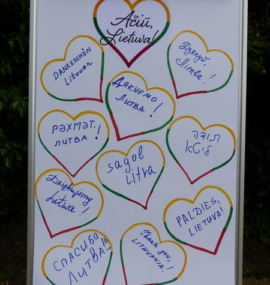 Ačiū,
Lietuva!
DANKESCHÖN
Litauen
Дзякуй,
Літва!
ДЯКУЄМО
ЛИТВА!
РӘХМӘТ,
ЛИТВА!
sagol
Litva
Dziękujemy
Litwa!
PALDIES,
LIETUVA!
СПАСИБО
ЛИТВА!!!
Thank you,
LITHUANIA!